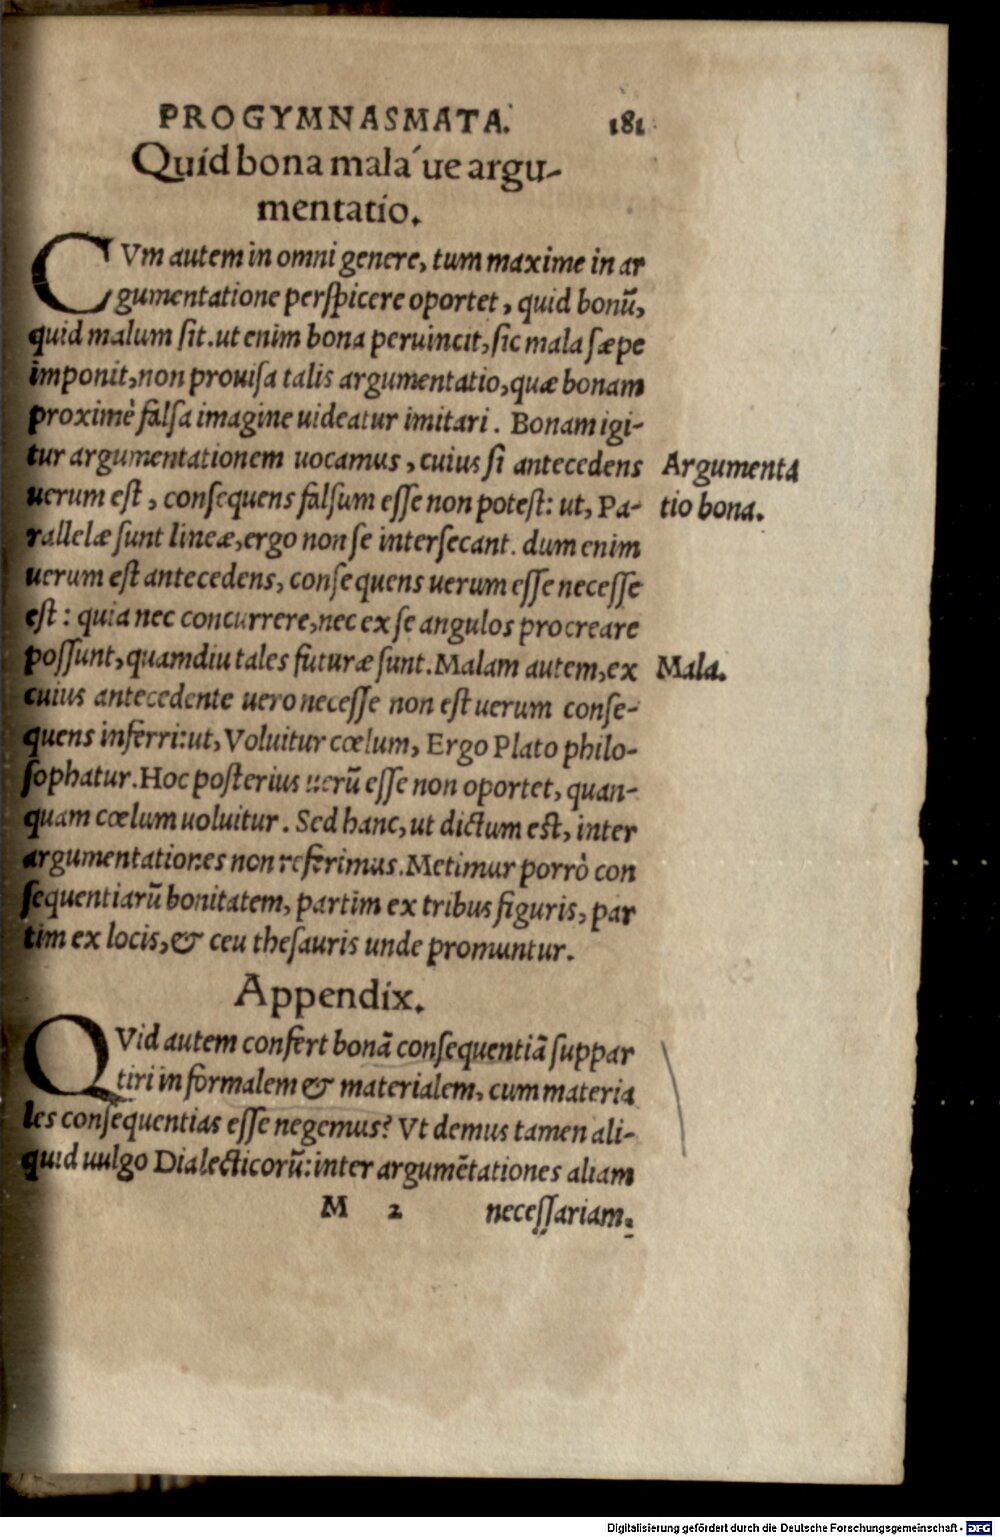 PROGYMNASMATA. 181
Quid bona mala´ue argu-
mentatio.
CVm autem in omni genere, tum maxime in ar
gumentatione perſpicere oportet, quid bonū,
quid malum ſit. ut enim bona peruincit, ſic mala ſæpe
imponit, non prouiſa talis argumentatio, quæ bonam
proximè falſa imagine uideatur imitari. Bonam igi-
tur argumentationem uocamus, cuius ſi antecedens
Argumenta
uerum eſt, conſequens falſum eſſe non poteſt: ut, Pa-
tio bona.
rallelæ ſunt lineæ, ergo non ſe interſecant. dum enim
uerum eſt antecedens, conſequens uerum eſſe neceſſe
eſt: quia nec concurrere, nec ex ſe angulos procreare
poſſunt, quamdiu tales futuræ ſunt. Malam autem, ex
Mala.
cuius antecedente uero neceſſe non eſt uerum conſe-
quens inferri: ut, Voluitur cœlum, Ergo Plato philo-
ſophatur. Hoc poſterius uerū eſſe non oportet, quan-
quam cœlum uoluitur. Sed hanc, ut dictum eſt, inter
argumentationes non referimus. Metimur porrò con
ſequentiarū bonitatem, partim ex tribus figuris, par
tim ex locis, & ceu theſauris unde promuntur.
Appendix.
QVid autem confert bonā conſequentiā ſuppar
tiri in formalem & materialem, cum materia
les conſequentias eſſe negemus? Vt demus tamen ali-
quid uulgo Dialecticorū: inter argumētationes aliam
M 2 neceſſariam.
Digitalisierung gefördert durch die Deutsche Forschungsgemeinschaft - DFG